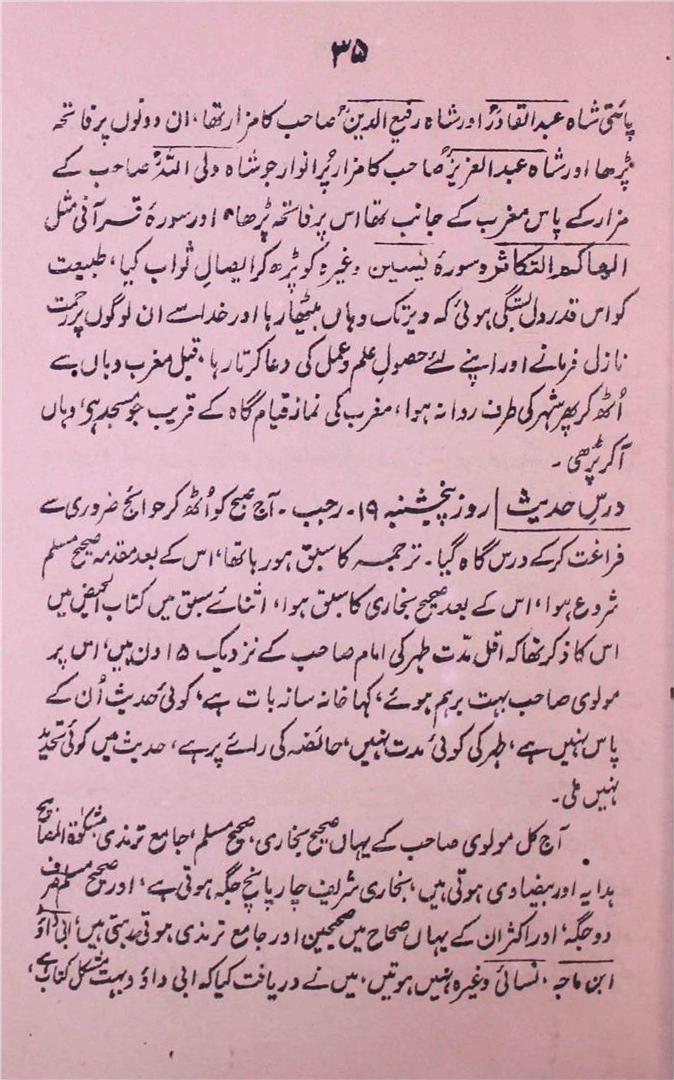 ۳۵
پائنتی شاہ عبدالقادرؒ اور شاہ رفیع الدینؒ صاحب کا مزار تھا، ان دونوں پر فاتحہ
پڑھا اور شاہ عبدالعزیزؒ صاحب کا مزار پُر انوار جو شاہ ولی اللہؒ صاحب کے
مزار کے پاس مغرب کے جانب تھا اس پر فاتحہ پڑھا، اور سورۂ قرآنی مثل
الھاکم التکاثر و سورۂ یٰسین وغیرہ کو پڑھ کر ایصالِ ثواب کیا، طبیعت
کو اس قدر دل بستگی ہوئی کہ دیر تک وہاں بیٹھا رہا اور خدا سے ان لوگوں پر رحمت
نازل فرمانے اور اپنے لئے حصولِ علم و عمل کی دعا کرتا رہا، قبل مغرب وہاں سے
اُٹھ کر پھر شہر کی طرف روانہ ہوا، مغرب کی نماز قیام گاہ کے قریب جو مسجد ہی، وہاں
آکر پڑھی۔
درسِ حدیث | روز پنجشنبہ ۱۹۔ رجب۔ آج صبح کو اُٹھ کر حوائج ضروری سے
فراغت کرکے درس گاہ گیا۔ ترجمہ کا سبق ہورہا تھا، اس کے بعد مقدمہ صحیح مسلم
شروع ہوا، اس کے بعد صحیح بخاری کا سبق ہوا، اثنائے سبق میں کتاب الحیض میں
اس کا ذکر تھا کہ اقل مدّت طہر کی امام صاحب کے نزدیک ۱۵ دن ہیں، اس پر
مولوی صاحب بہت برہم ہوئے، کہا خانہ سازنہ بات ہے، کوئی حدیث اُن کے
پاس نہیں ہے، طہر کی کوئی مدت نہیں، حائضہ کی رائے پر ہے، حدیث میں کوئی تحدید
نہیں ملی۔
آج کل مولوی صاحب کے یہاں صحیح بخاری، صحیح مسلم، جامع ترمذی، مشکوٰۃ المصابیح
ہدایہ اور بیضاوی ہوتی ہیں، بخاری شریف چار پانچ جگہ ہوتی ہے، اور صحیح مسلم صرف
دو جگہ، اور اکثر ان کے یہاں صحاح میں صحیحین اور جامع ترمذی ہوتی رہتی ہیں، ابی داؤد
ابن ماجہ، نسائی وغیرہ نہیں ہوتیں، میں نے دریافت کیا کہ ابی داؤد بہت مشکل کتاب ہے،